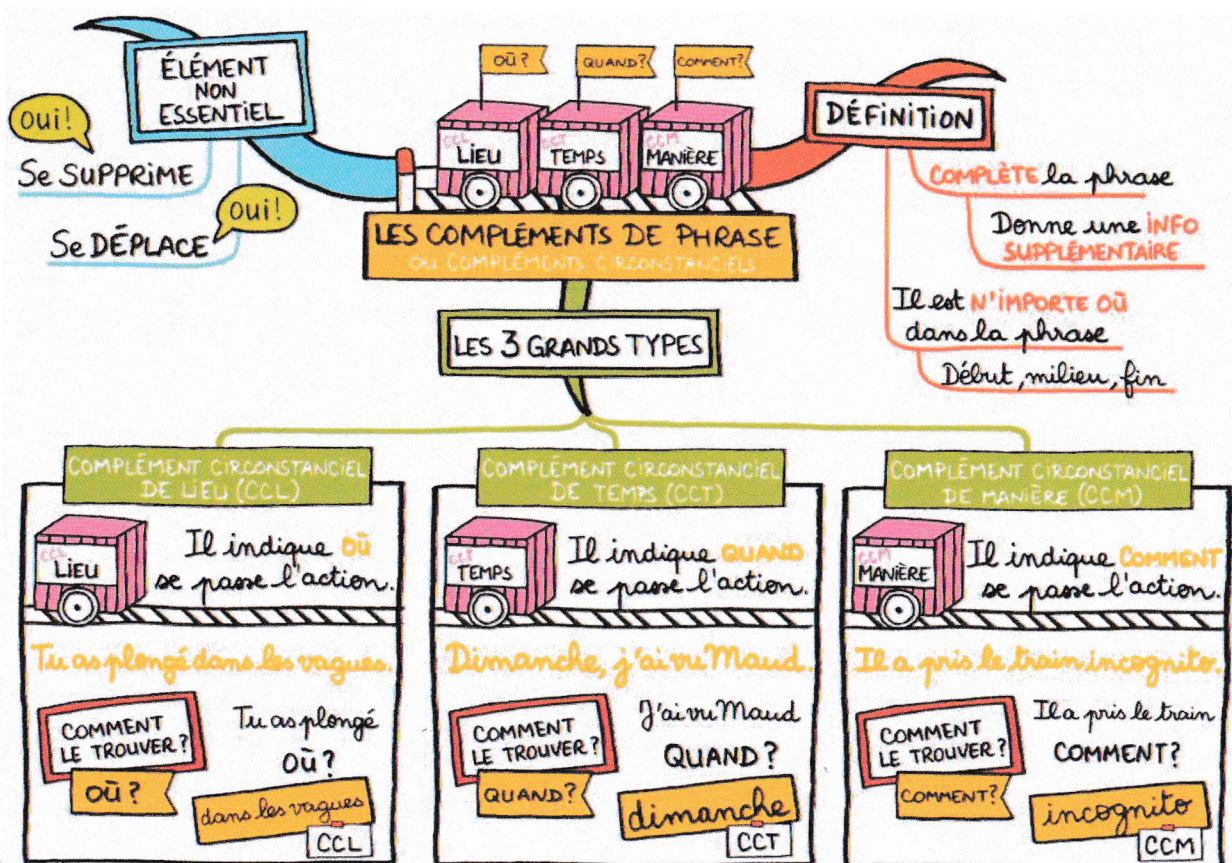 ÉLÉMENT
NON
ESSENTIEL
oui!
Se SUPPRIME
oui!
Se DÉPLACE
OÙ?
QUAND?
COMMENT?
CCL
LIEU
CCT
TEMPS
CCM
MANIÈRE
LES COMPLÉMENTS DE PHRASE
OU COMPLÉMENTS CIRCONSTANCIELS
DÉFINITION
COMPLÈTE la phrase
Donne une INFO
SUPPLÉMENTAIRE
Il est N'IMPORTE OÙ
dans la phrase
Début, milieu, fin
LES 3 GRANDS TYPES
COMPLÉMENT CIRCONSTANCIEL
DE LIEU (CCL)
CCL
LIEU
Il indique OÙ
se passe l'action.
Tu as plongé dans les vagues.
COMMENT
LE TROUVER?
OÙ?
Tu as plongé
OÙ?
dans les vagues
CCL
COMPLÉMENT CIRCONSTANCIEL
DE TEMPS (CCT)
CCT
TEMPS
Il indique QUAND
se passe l'action.
Dimanche, j'ai vu Maud.
COMMENT
LE TROUVER?
QUAND?
J'ai vu Maud
QUAND?
dimanche
CCT
COMPLÉMENT CIRCONSTANCIEL
DE MANIÈRE (CCM)
CCM
MANIÈRE
Il indique COMMENT
se passe l'action.
Il a pris le train incognito.
COMMENT
LE TROUVER?
COMMENT?
Il a pris le train
COMMENT?
incognito
CCM